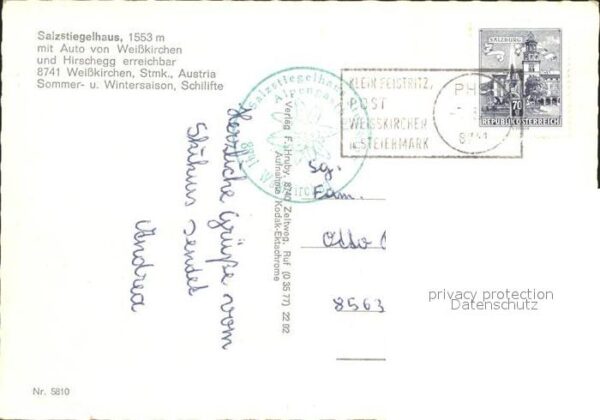 Salzstiegelhaus, 1553 m
mit Auto von Weißkirchen
und Hirschegg erreichbar
8741 Weißkirchen, Stmk., Austria
Sommer- u. Wintersaison, Schilifte
Herzliche Grüße vom
Skikurs sendet
Andrea
Verlag F. Hruby, 8740 Zeltweg, Ruf (0 35 77) 22 92
Aufnahme: Kodak-Ektachrome
Salzstiegelhaus
Alpengast
8741
KLEIN FEISTRITZ,
POST
WEISSKIRCHEN
in STEIERMARK
SALZBURG
70
REPUBLIK ÖSTERREICH
Sg.
Fam.
Otto
8563
privacy protection
Datenschutz
Nr. 5810